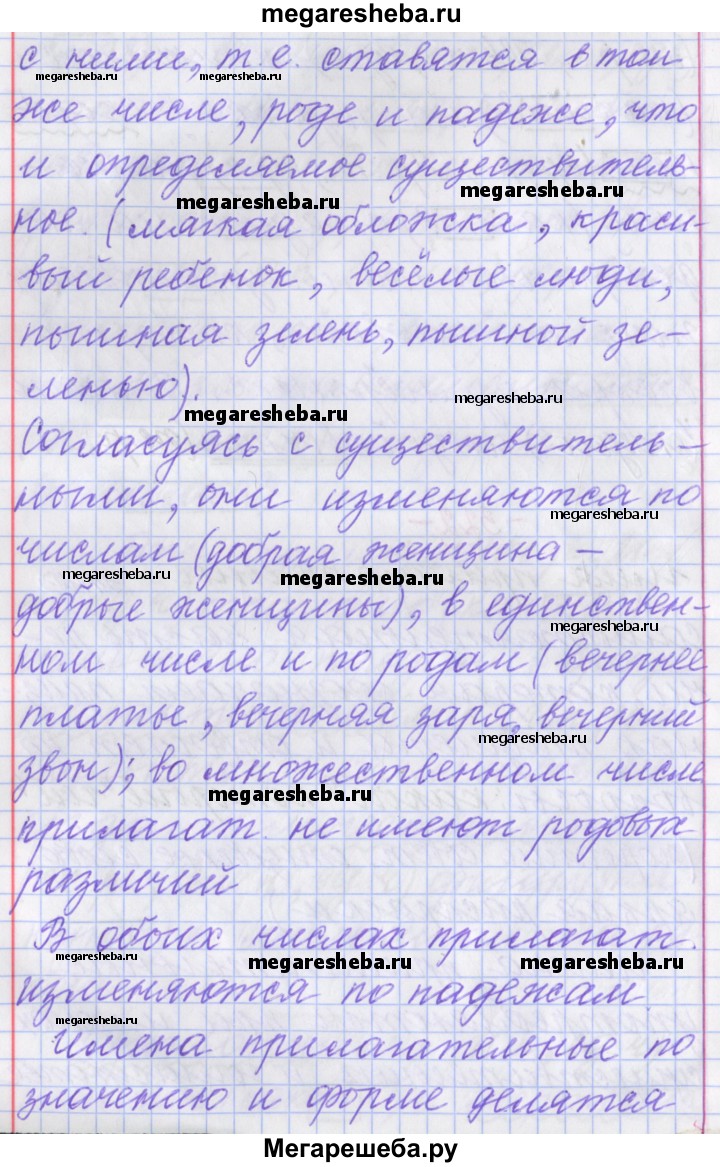 megaresheba.ru
с ними, т.е. ставятся в том
megaresheba.ru megaresheba.ru megaresheba.ru
же числе, роде и падеже, что
и определяемое существитель-
megaresheba.ru megaresheba.ru
ное. (мягкая обложка, краси-
вый ребенок, весёлые люди,
пышная зелень, пышной зе-
ленью).
megaresheba.ru megaresheba.ru
Согласуясь с существитель-
ными, они изменяются по
megaresheba.ru
числам (добрая женщина -
megaresheba.ru megaresheba.ru
добрые женщины), в единствен-
megaresheba.ru
ном числе и по родам (вечернее
платье, вечерняя заря, вечерний
megaresheba.ru
звон); во множественном числе
megaresheba.ru
прилагат. не имеют родовых
различий
В обоих числах прилагат.
megaresheba.ru megaresheba.ru megaresheba.ru
изменяются по падежам.
megaresheba.ru
Имена прилагательные по
значению и форме делятся
Мегарешеба.ру